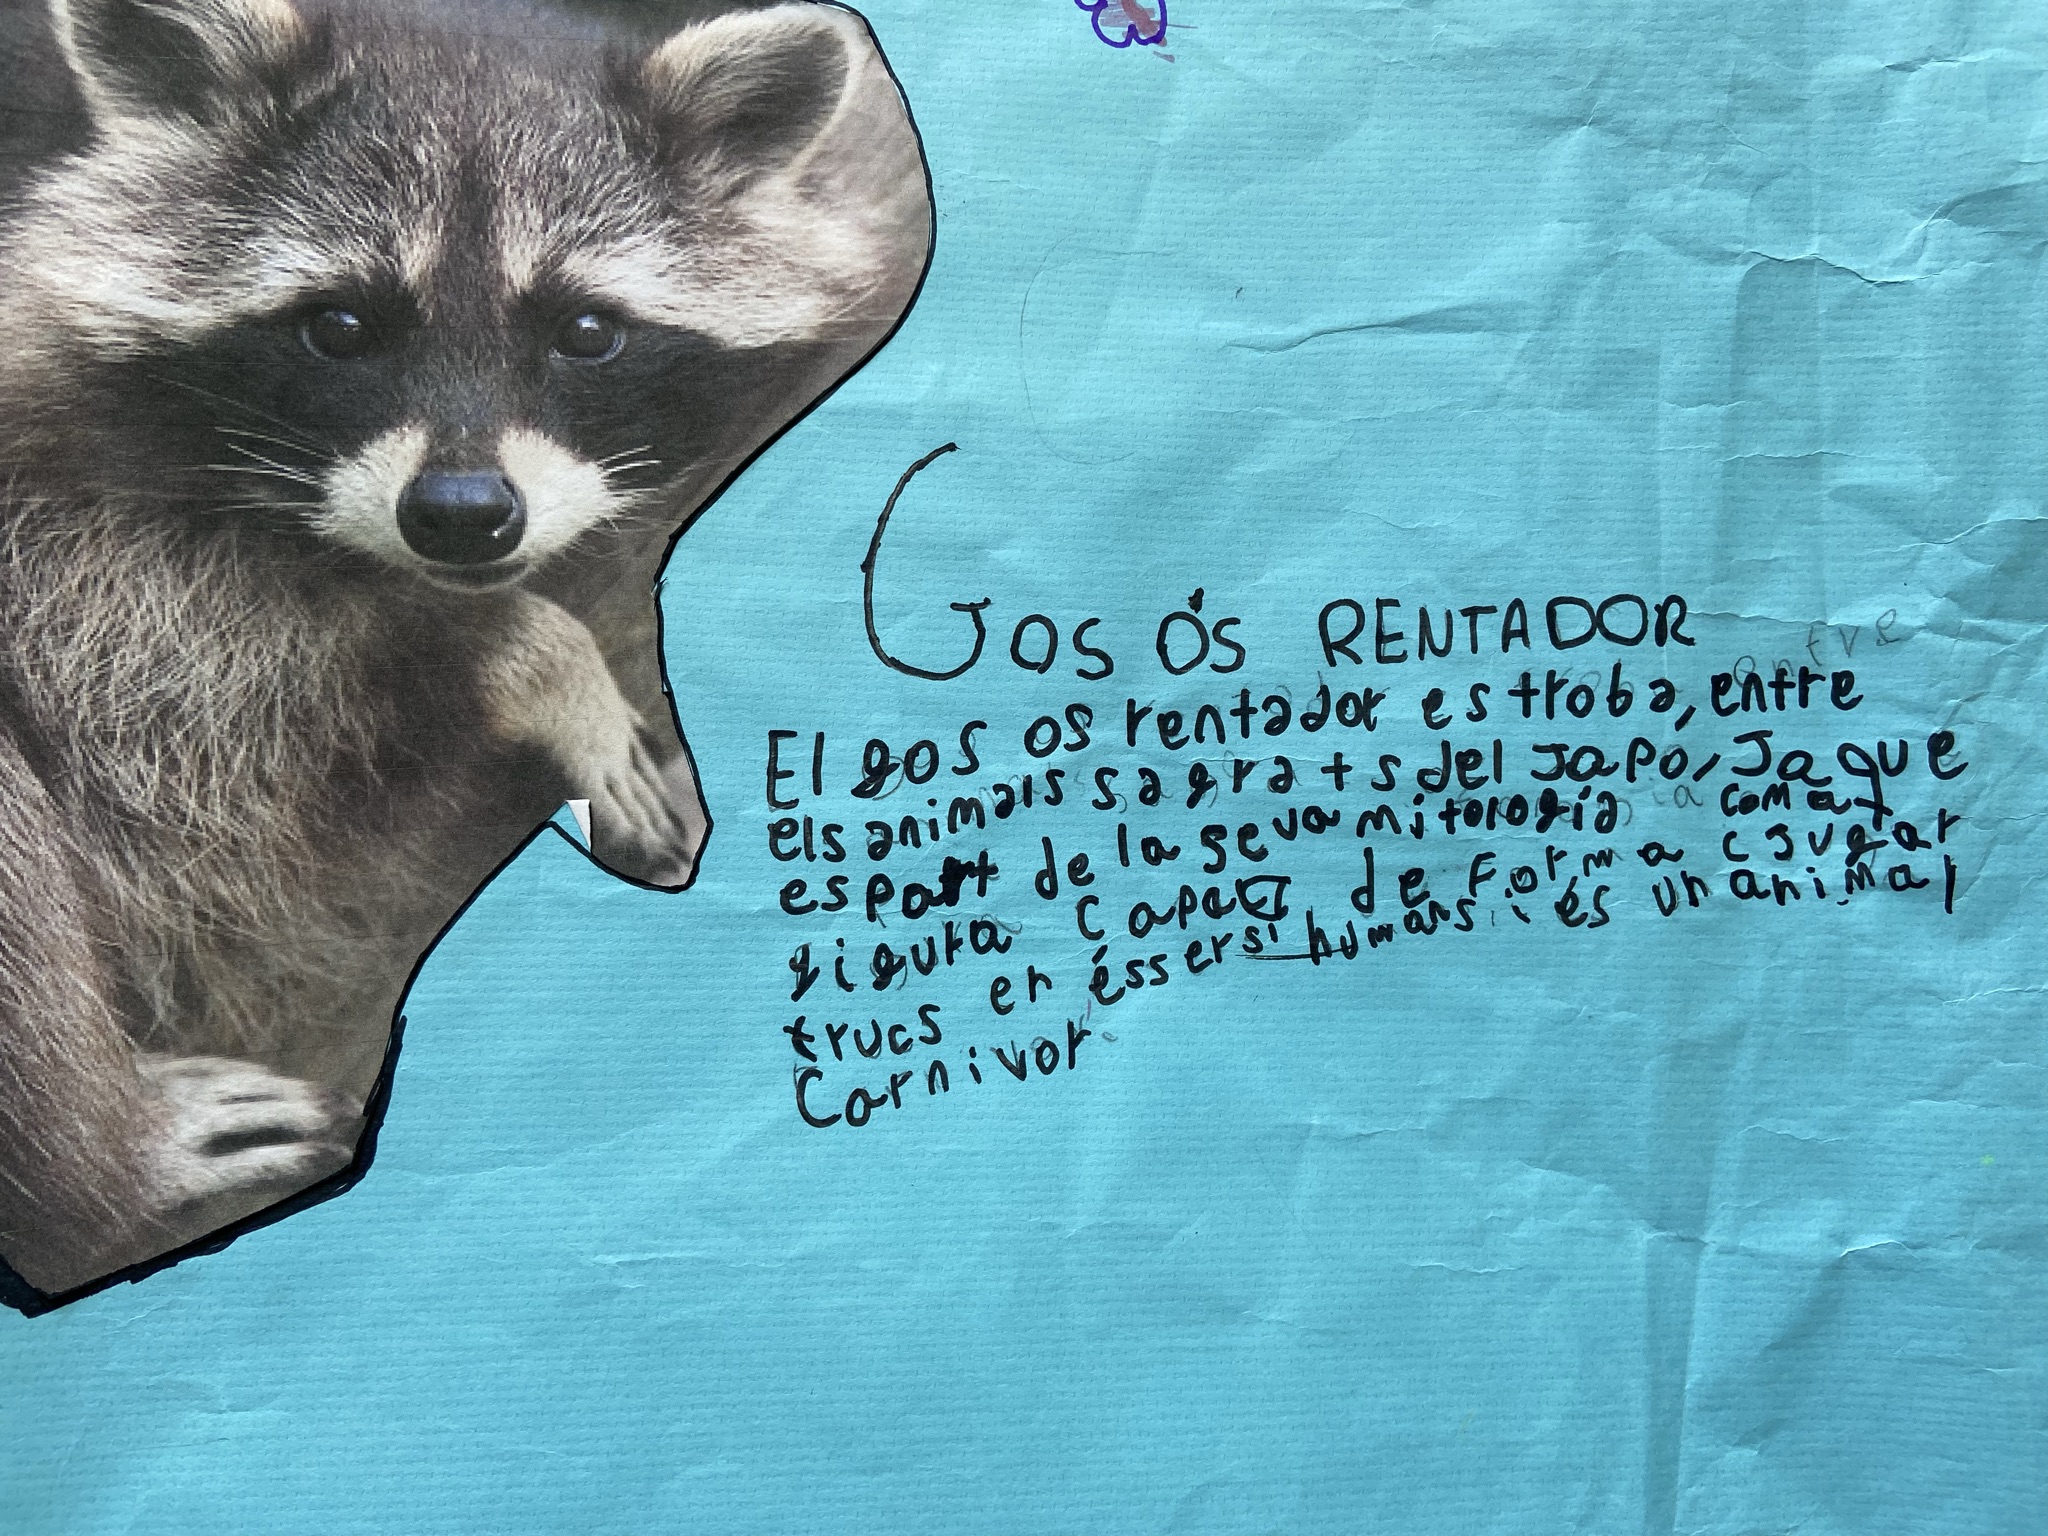 GOS ÓS RENTADOR
El gos os rentador es troba, entre
els animals sagrats del Japo, Ja que
es part de la seva mitologia com a
figura capaç de Forma i jugar
trucs en éssers humans i és un animal
Carnivor